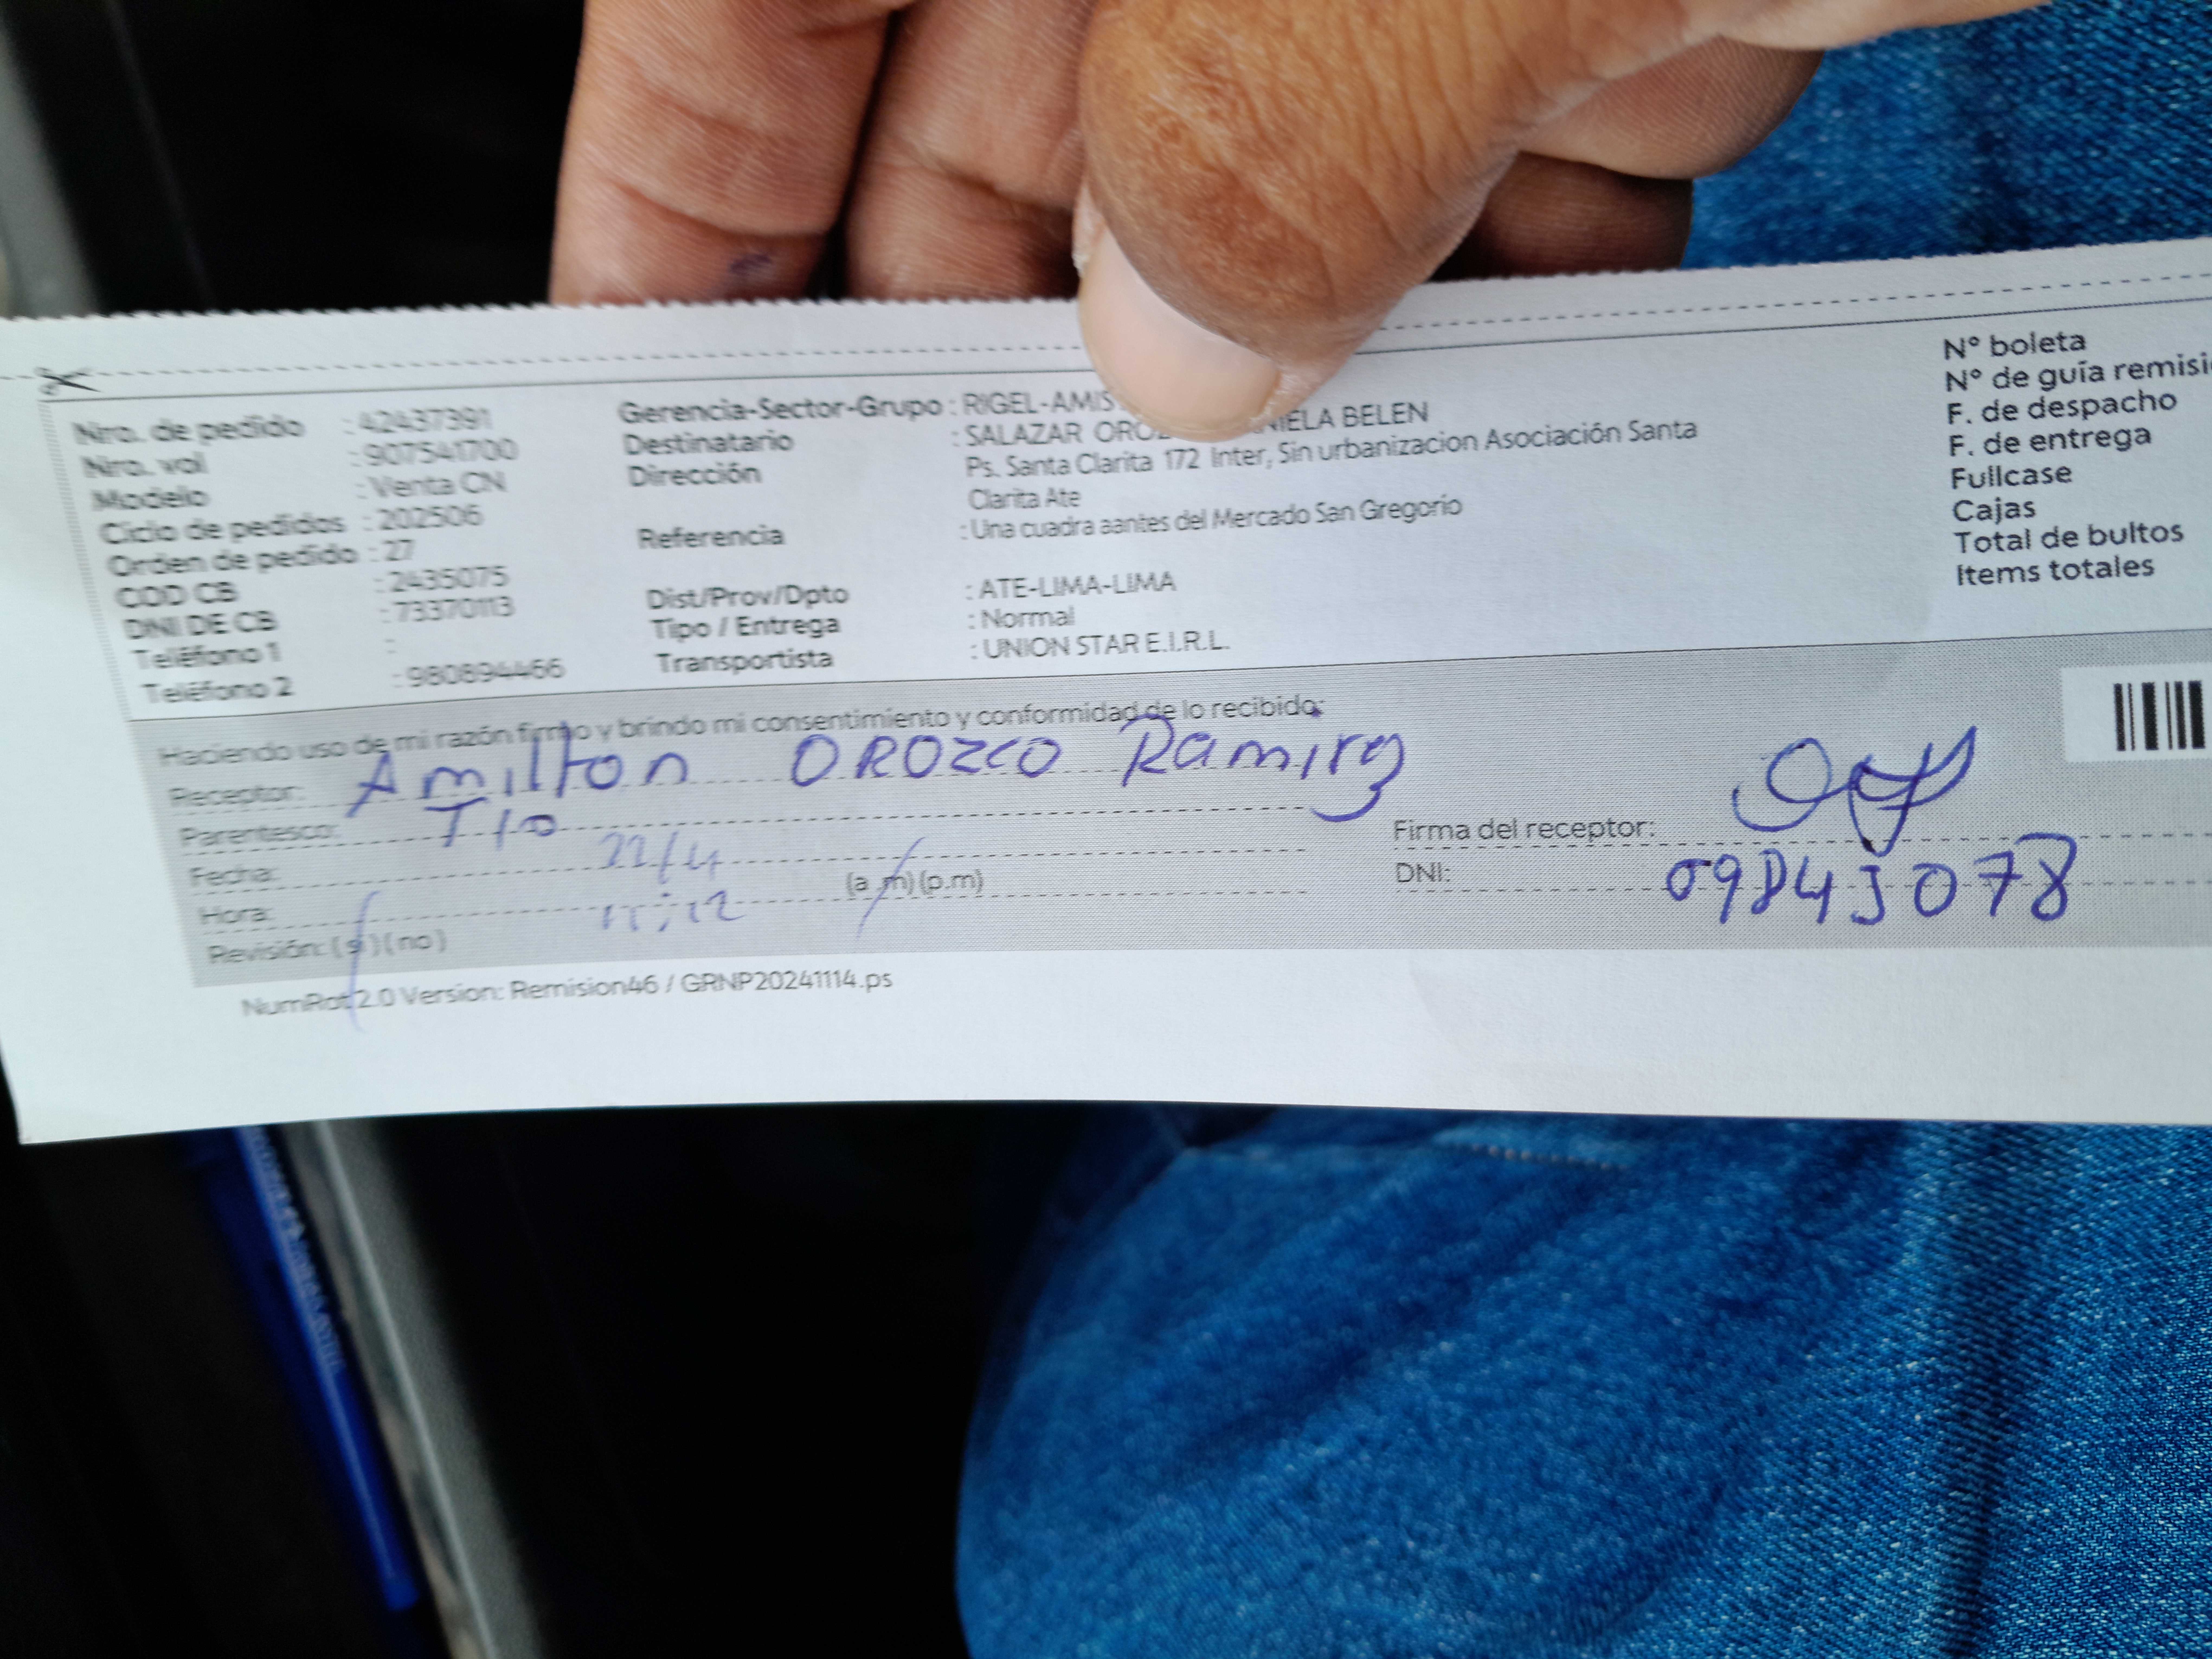 Nro. de pedido : 42437391
Nro. vol : 907541700
Modelo : Venta CN
Ciclo de pedidos : 202506
Orden de pedido : 27
COD CB : 2435075
DNI DE CB : 73370113
Teléfono 1 :
Teléfono 2 : 980894466
Gerencia-Sector-Grupo : RIGEL-AMIS
Destinatario : SALAZAR BELEN
Dirección : Ps. Santa Clarita 172 Inter, Sin urbanizacion Asociación Santa
Clarita Ate
Referencia : Una cuadra aantes del Mercado San Gregorio
Dist/Prov/Dpto : ATE-LIMA-LIMA
Tipo / Entrega : Normal
Transportista : UNION STAR E.I.R.L.
N° boleta
N° de guía
F. de despacho
F. de entrega
Fullcase
Cajas
Total de bultos
Items totales
Haciendo uso de mi razón firmo y brindo mi consentimiento y conformidad de lo recibido:
Receptor: Amilton OROZCO
Parentesco: TIO
Fecha: 22/4
Hora: 11:12 (a.m)(p.m)
Revisión: (si)(no)
Firma del receptor:
DNI:
NumRot 2.0 Version: Remision46 / GRNP20241114.ps